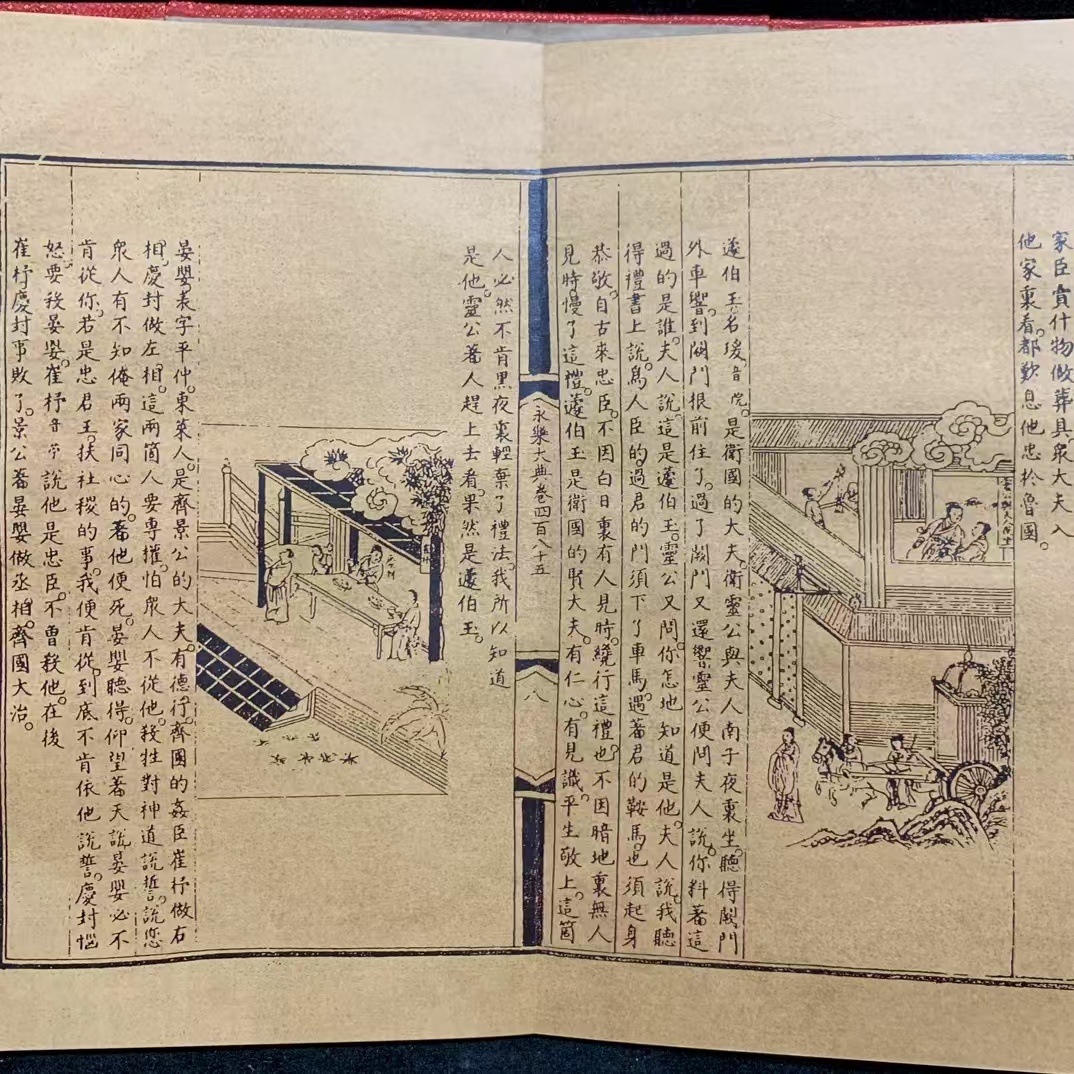 家臣賣什物做葬具。衆大夫入
他家裏看。都歎息他忠於魯國。
蘧伯玉名瑗。音院。是衛國的大夫。衛靈公與夫人南子夜裏坐。聽得闕門
外車響。到闕門根前住了。過了闕門又還響。靈公便問夫人說。你料著這
過的是誰。夫人說。這是蘧伯玉。靈公又問。你怎地知道是他。夫人說。我聽
得禮書上說。爲人臣的。過君的門須下了車馬。遇著君的鞍馬。也須起身
恭敬。自古來忠臣。不因白日裏有人見時。纔行這禮。也不因暗地裏無人
見時。慢了這禮。蘧伯玉是衛國的賢大夫。有仁心。有見識。平生敬上。這箇
永樂大典卷四百八十五
八
人必然不肯黑夜裏輕棄了禮法。我所以知道
是他。靈公著人趕上去看。果然是蘧伯玉。
晏嬰表字平仲。東萊人。是齊景公的大夫。有德行。齊國的姦臣崔杼做右
相。慶封做左相。這兩箇人要專權。怕衆人不從他。殺牲對神道說誓。說您
衆人有不知俺兩家同心的。著他便死。晏嬰聽得。仰望著天說。晏嬰必不
肯從你。若是忠君王。扶社稷的事。我便肯從。到底不肯依他說誓。慶封惱
怒。要殺晏嬰。崔杼音 說他是忠臣。不曾殺他。在後
崔杼慶封事敗了。景公著晏嬰做丞相。齊國大治。